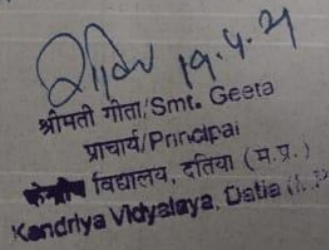 19.4.21
श्रीमती गीता/Smt. Geeta
प्राचार्य/Principal
केन्द्रीय विद्यालय, दतिया (म.प्र.)
Kendriya Vidyalaya, Datia